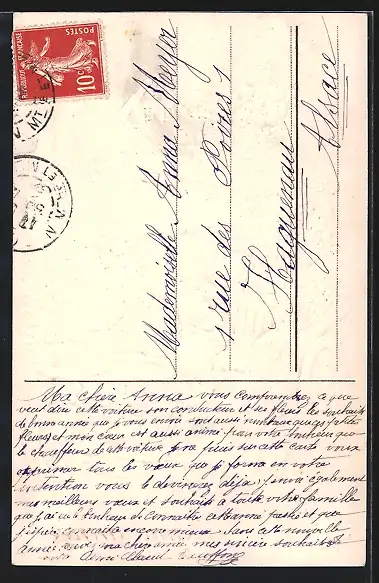 POSTES
10c
REPUBLIQUE FRANÇAISE
Mademoiselle Anna Meyer
rue des
Haguenau
Alsace
Ma chère Anna vous comprendrez ce que
veut dire cette voiture son conducteur et ses fleurs les souhaits
de bonne année que je vous envoie sont aussi nombreux que ces petites
fleurs et mon cœur est aussi animé pour votre bonheur que
le chauffeur de cette voiture je ne puis sur cette carte vous
exprimer tous les vœux que je forme en votre
intention vous le devinez déjà j'envoie également
mes meilleurs vœux et souhaits à toute votre famille
que j'ai eu le bonheur de connaître cette année passée et que
j'espère connaître encore mieux dans cette nouvelle
année